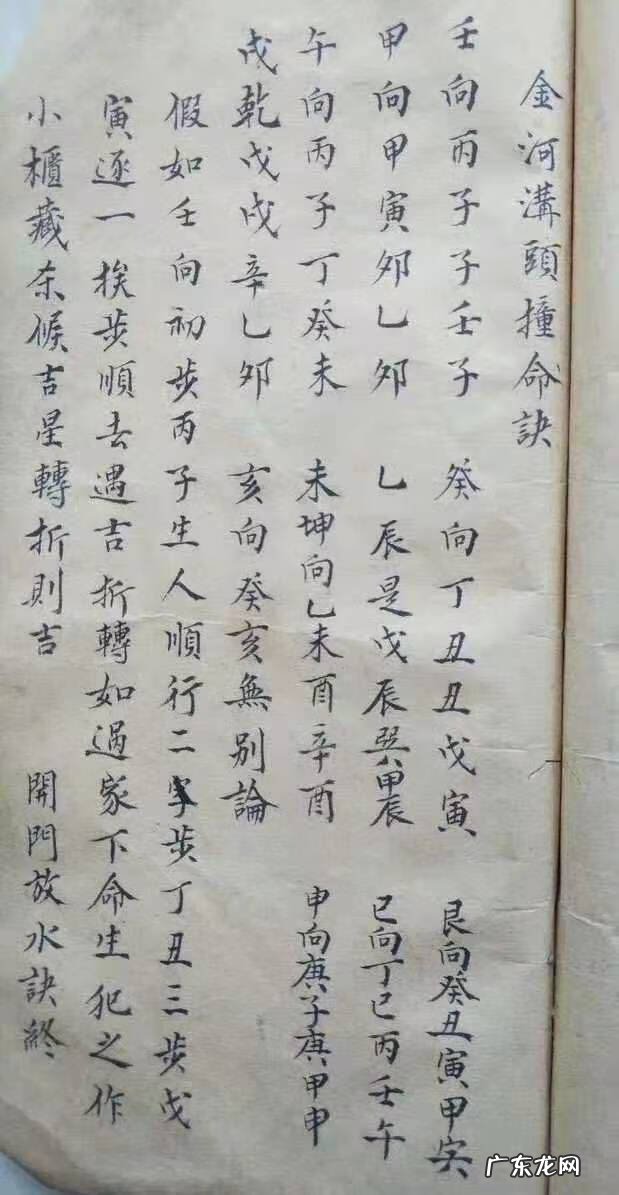 金河溝頭撞命訣
壬向丙子子壬子 癸向丁丑丑戊寅 艮向癸丑寅甲寅
甲向甲寅夘乙夘 乙辰是戊辰巽甲辰 巳向丁巳丙壬午
午向丙子丁癸未 未坤向乙未酉辛酉 申向庚子庚甲申
戌乾戊戌辛乙夘 亥向癸亥無别論
假如壬向初步丙子生人順行二字步丁丑三步戊
寅逐一挨步順去遇吉折轉如遇家下命生犯之作
小櫃藏 候吉星轉折則吉 開門放水訣終
广东龙网